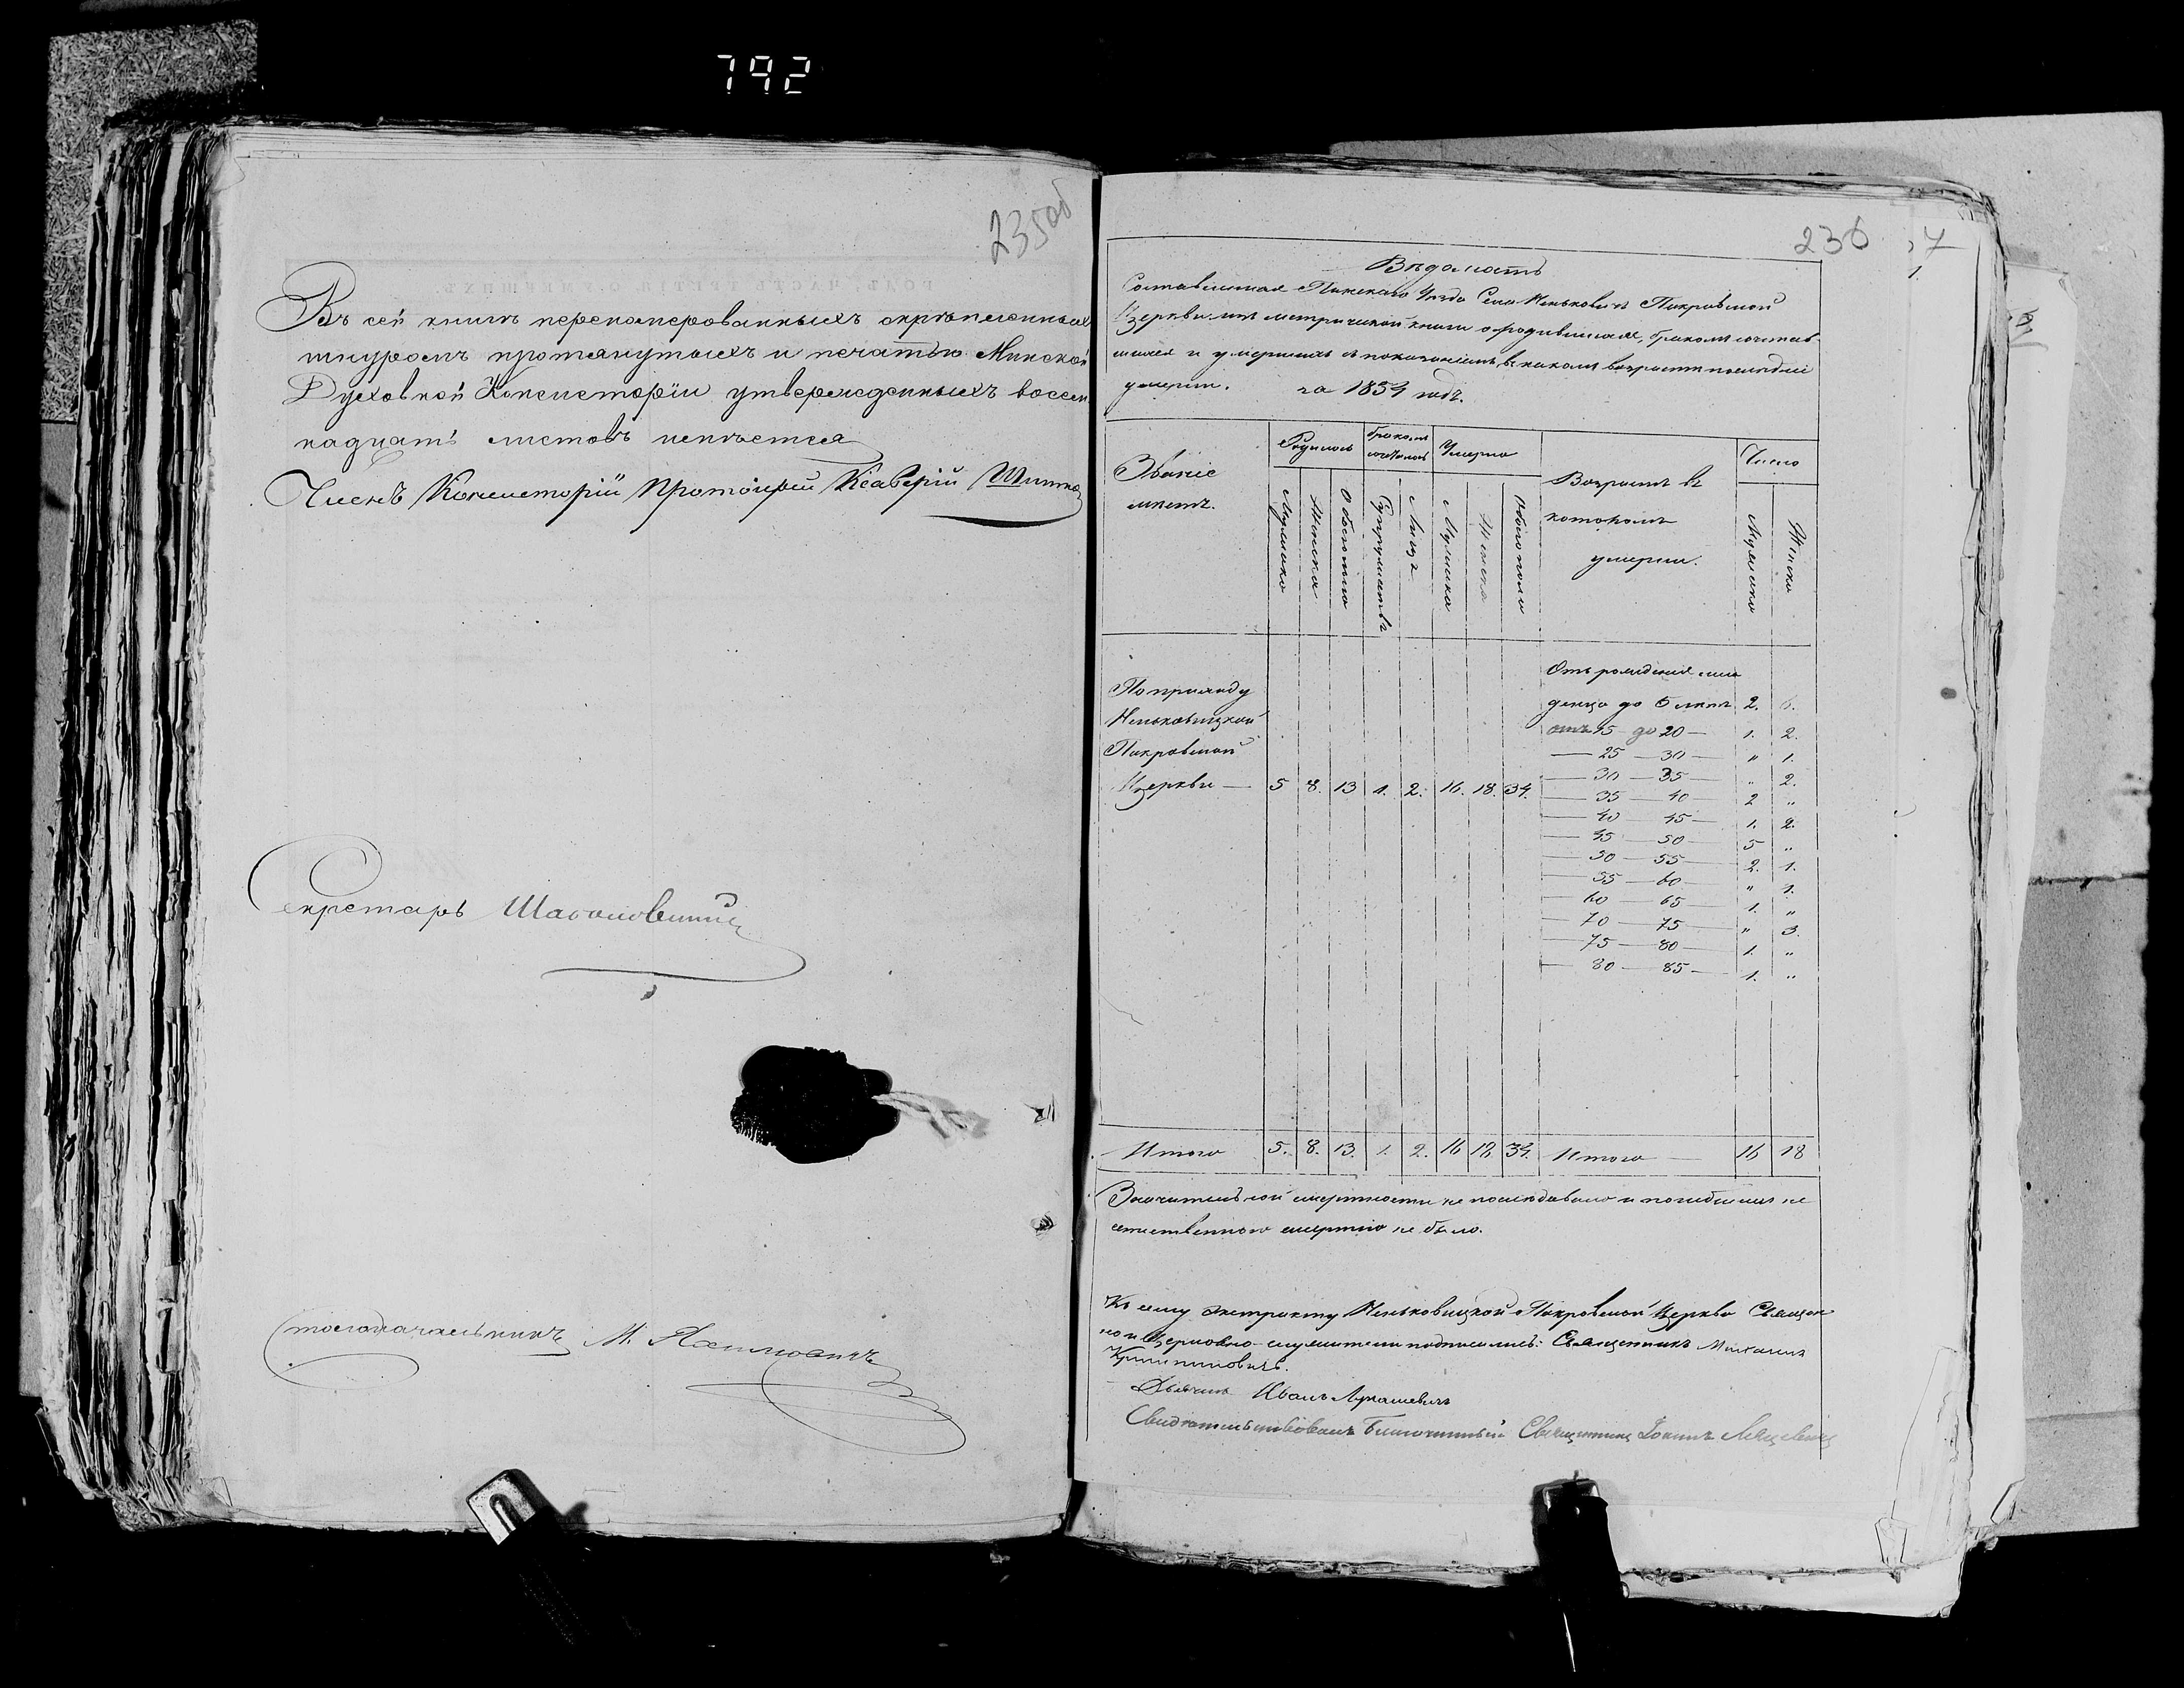 792
235об
Въ сей книгѣ перенамерованныхъ скрѣпленныхъ
шнуромъ протянутыхъ и печатью Минской
Духовной Консисторіи утвержденныхъ восем
надцать листовъ имѣется
Членъ Консисторіи Протоіерей Ксаверій
Секретарь
Столоначальникъ М.
236
7
1.
Вѣдомость
Составленная Пинскаго Уѣзда Села Неньковичъ Покровской
Церкви изъ метрической книги о родившихся, бракомъ сочетав-
шихся и умершихъ съ показаніемъ въ какомъ возрастѣ послѣдніе
умерли. за 1854 годъ.
Званіе мѣстъ.
Родилось
бракомъ сочеталось
Умерло
Возрастъ въ которомъ умерли.
Число
Мужеска Женска Обоего пола Супружествъ Лицъ Мужеска Женска Обоего пола Мужеска Женска
От рожденія мла
денца до 5 лѣтъ 2. 6.
отъ 15 до 20 — 1. 2.
— 25 — 30 — " 1.
— 30 — 35 — " 2.
— 35 — 40 — 2 "
— 40 — 45 — 1. 2.
— 45 — 50 — 5 "
— 50 — 55 — 2. 1.
— 55 — 60 — " 1.
— 60 — 65 — 1. "
— 70 — 75 — " 3.
— 75 — 80 — 1. "
— 80 — 85 — 1. "
По приходу
Неньковицкой
Покровской
Церкви — 5 8. 13 1. 2. 16. 18. 34.
Итого 5. 8. 13. 1. 2. 16 18. 34. Итого — 16 18
Значительной смертности не послѣдовало и погибшихъ не
естественною смертію не было.
Къ сему экстракту Неньковицкой Покровской Церкви Священ
но и Церковно-служители подписались: Священникъ Михаилъ
Дьячекъ Иванъ Лукашевичъ
Свидѣтельствовалъ Благочинный Священникъ Іоаннъ